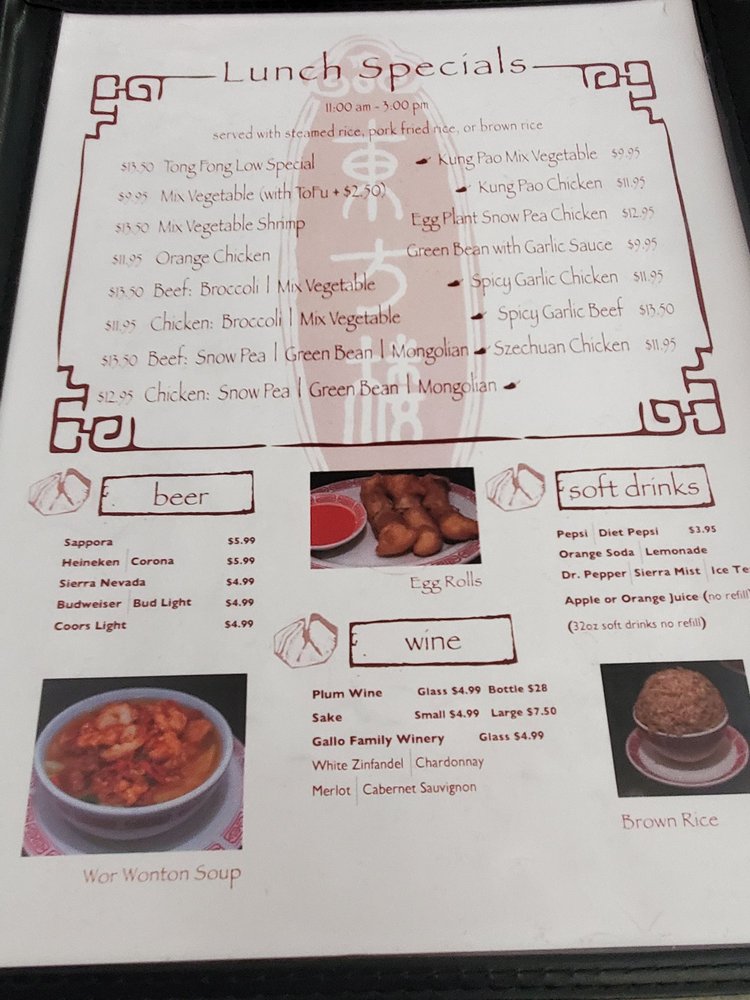 Lunch Specials
11:00 am - 3:00 pm
served with steamed rice, pork fried rice, or brown rice
東方樓
$13.50 Tong Fong Low Special
$9.95 Mix Vegetable (with ToFu + $2.50)
$13.50 Mix Vegetable Shrimp
$11.95 Orange Chicken
$13.50 Beef: Broccoli | Mix Vegetable
$11.95 Chicken: Broccoli | Mix Vegetable
$13.50 Beef: Snow Pea | Green Bean | Mongolian
$12.95 Chicken: Snow Pea | Green Bean | Mongolian
Kung Pao Mix Vegetable $9.95
Kung Pao Chicken $11.95
Egg Plant Snow Pea Chicken $12.95
Green Bean with Garlic Sauce $9.95
Spicy Garlic Chicken $11.95
Spicy Garlic Beef $13.50
Szechuan Chicken $11.95
beer
Sappora $5.99
Heineken | Corona $5.99
Sierra Nevada $4.99
Budweiser | Bud Light $4.99
Coors Light $4.99
Wor Wonton Soup
Egg Rolls
wine
Plum Wine Glass $4.99 Bottle $28
Sake Small $4.99 Large $7.50
Gallo Family Winery Glass $4.99
White Zinfandel | Chardonnay
Merlot | Cabernet Sauvignon
soft drinks
Pepsi | Diet Pepsi $3.95
Orange Soda | Lemonade
Dr. Pepper | Sierra Mist | Ice Te
Apple or Orange Juice (no refill)
(32oz soft drinks no refill)
Brown Rice